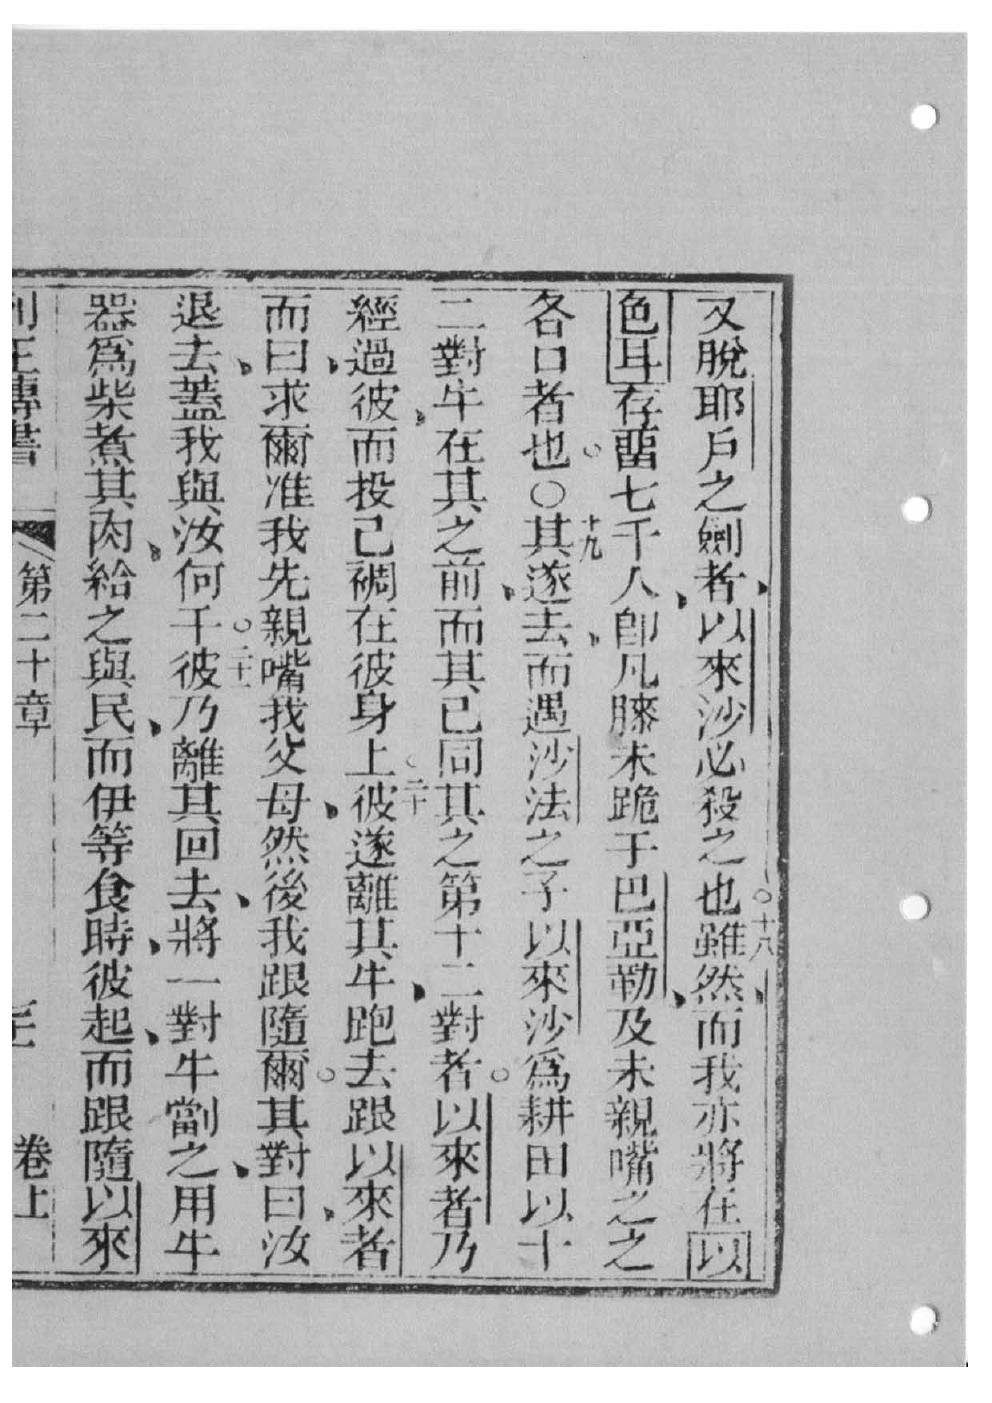 又脫耶戶之劍者以來沙必殺之也十八雖然而我亦將在以
色耳存畱七千人卽凡膝未跪于巴亞勒及未親嘴之之
各口者也〇十九其遂去而遇沙法之子以來沙為耕田以十
二對牛在其之前而其己同其之第十二對者以來者乃
經過彼而投己裯在彼身上二十彼遂離其牛跑去跟以來者
而曰求爾准我先親嘴我父母然後我跟隨爾其對曰汝
退去蓋我與汝何干二十一彼乃離其回去將一對牛劏之用牛
器為柴煮其肉給之與民而伊等食時彼起而跟隨以來
列王傳書 第二十章 卷上